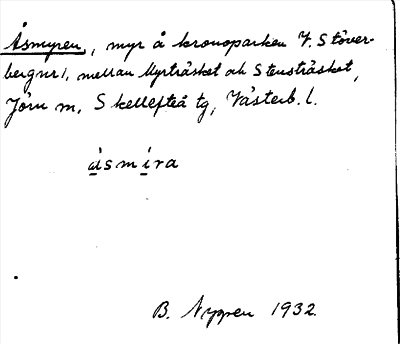 Åsmyren, myr å kronoparken V. Stöver-
bergnr 1, mellan Myrträsket och Stensträsket,
Jörn sn, Skellefteå tg, Västerb. l.
åsmira
B. Nygren 1932.